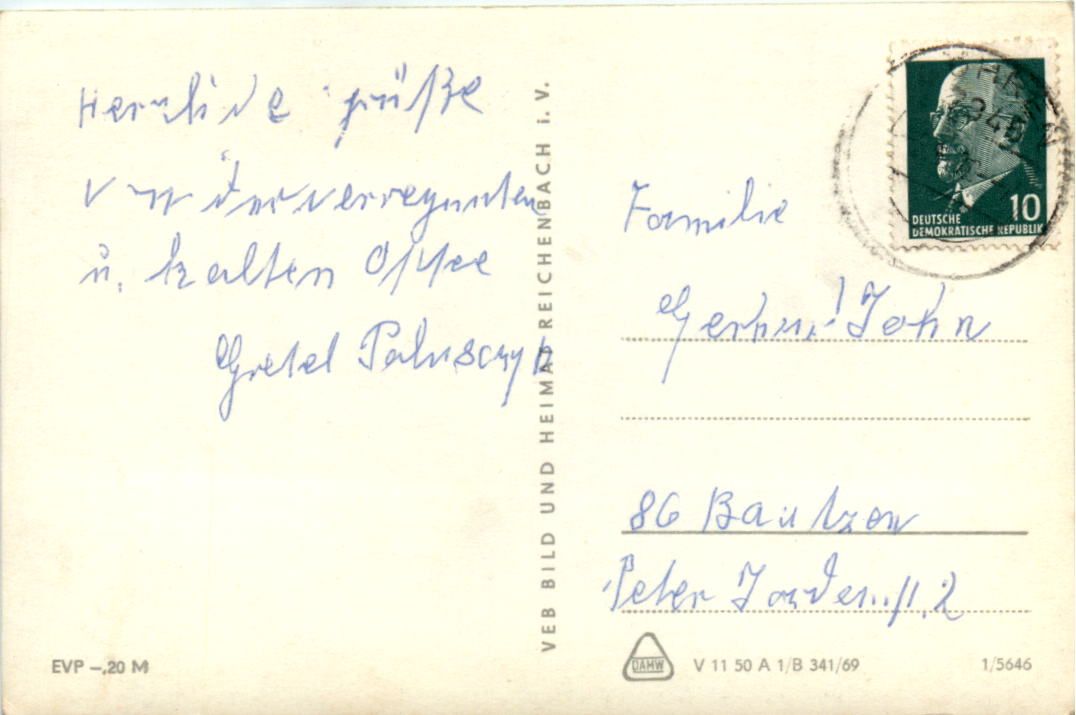 Herzliche Grüße
von der verregneten
u. kalten Ostsee
Gretel
Familie
Gerhard John
86 Bautzen
Peter Jordan Str. 2
VEB BILD UND HEIMAT REICHENBACH i. V.
DEUTSCHE
DEMOKRATISCHE REPUBLIK
10
EVP –,20 M
DAMW
V 11 50 A 1/B 341/69
1/5646